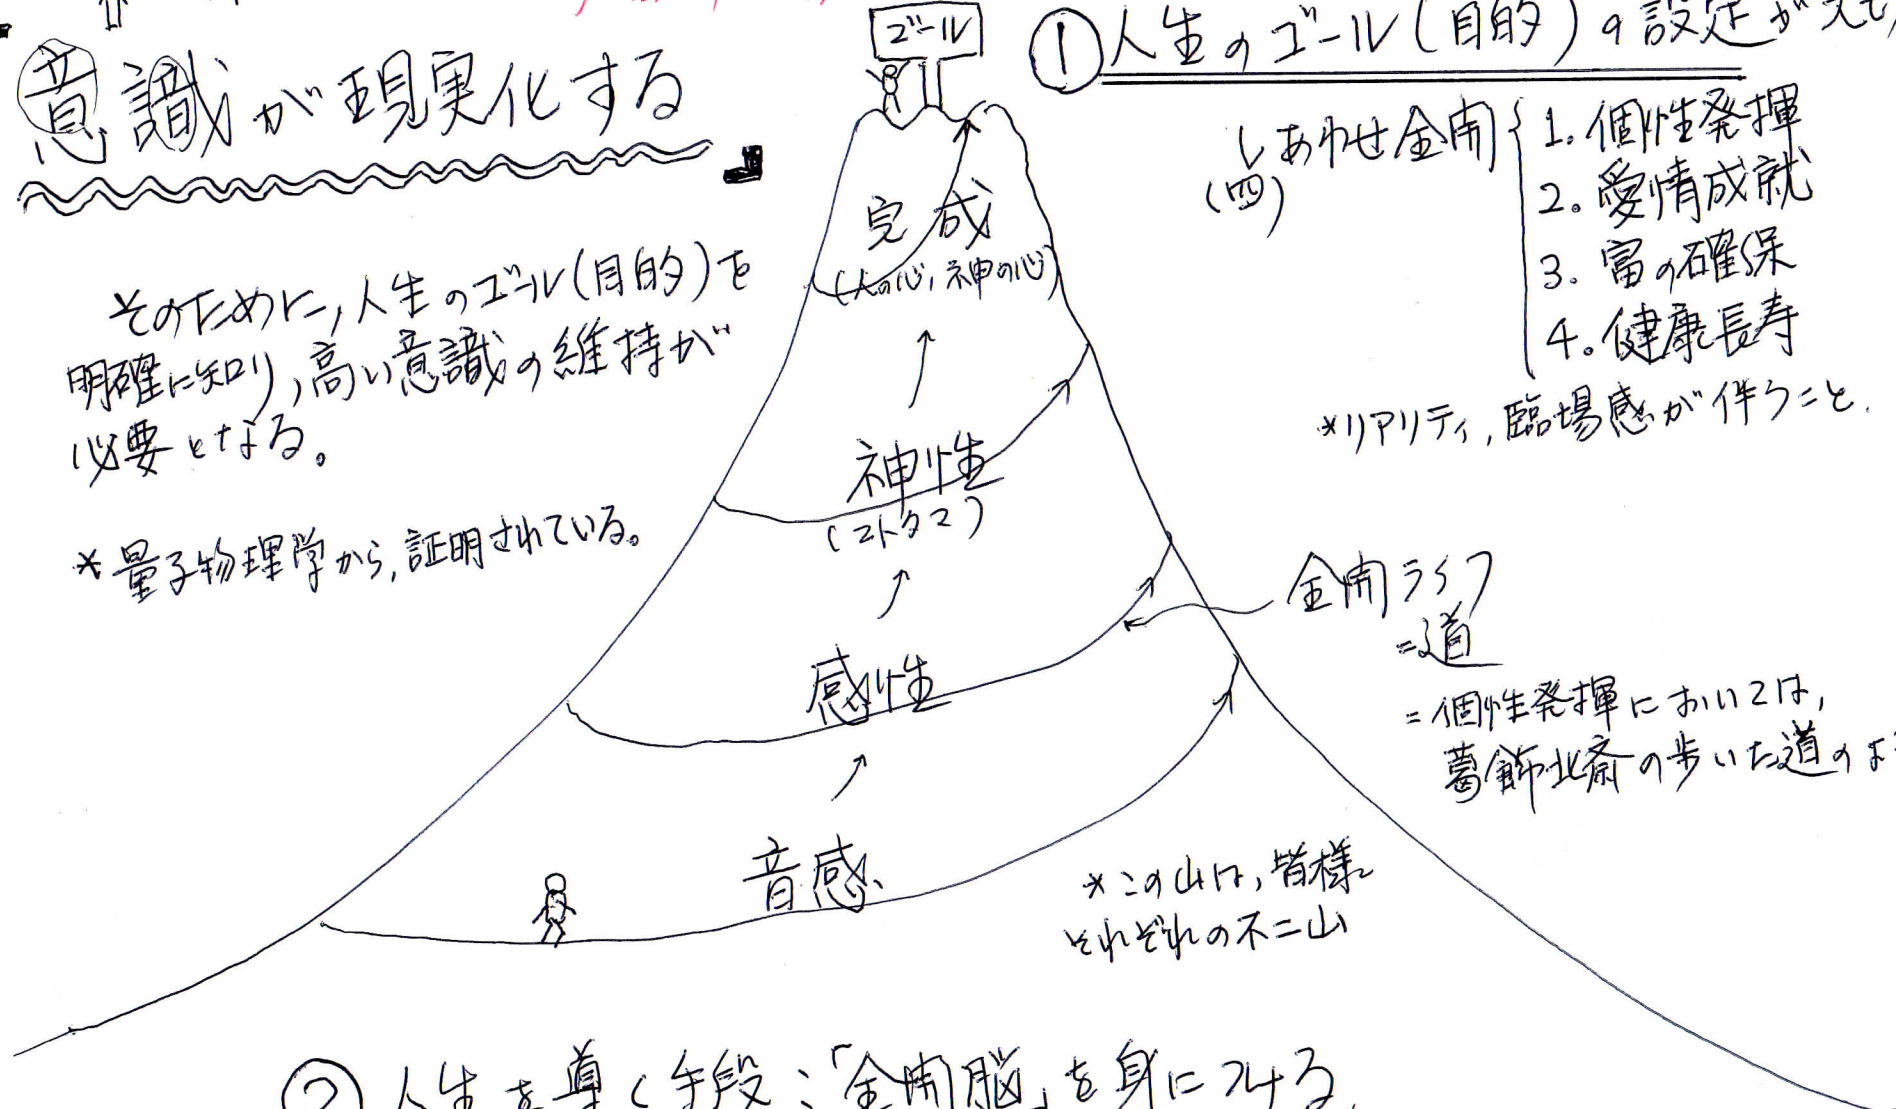 意識が現実化する
そのために,人生のゴール(目的)を
明確に知り,高い意識の維持が
必要となる。
*量子物理学から,証明されている。
ゴール
完成
(人の心,神の心)
神性
(コトタマ)
感性
音感
①人生のゴール(目的)の設定が
しあわせ全開
(四)
1.個性発揮
2.愛情成就
3.富の確保
4.健康長寿
*リアリティ,臨場感が伴うこと.
全開ライフ
=道
=個性発揮においては,
葛飾北斎の歩いた道の
*この山は,皆様
それぞれの不二山
②人生を導く手段:「全開脳」を身につける.